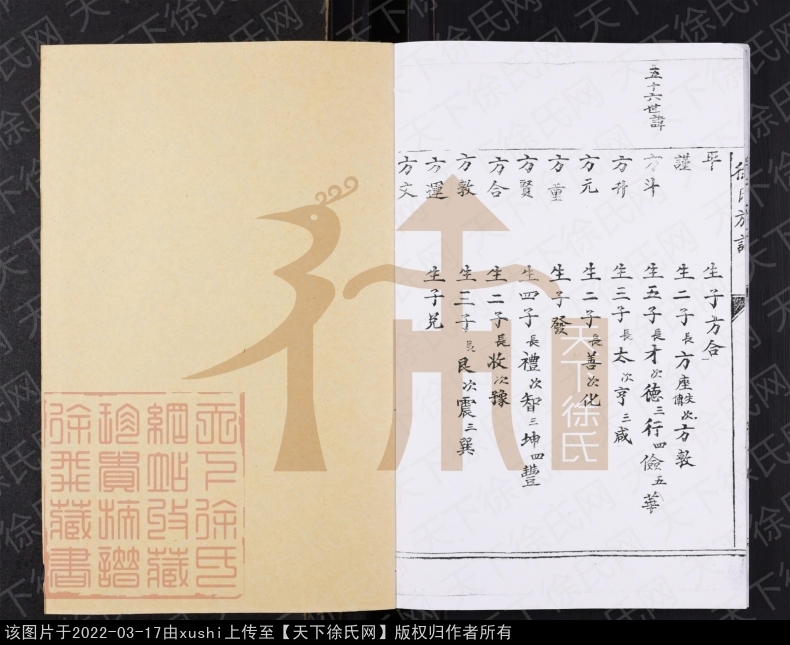 徐氏族譜
五十六世諱
平 生子方合
謹 生二子長方座失傳次方敦
方斗 生五子長才次德三行四儉五華
生三子長太次亨三咸
方元 生二子長善次化
方董 生子發
方賢 生四子長禮次智三坤四豐
方合 生二子長收次豫
方敦 生三子長艮次震三巽
方運 生子兌
方文
天下徐氏
天下徐氏
網站收藏
珍貴族譜
徐飛藏書
天下徐氏网
该图片于2022-03-17由xushi上传至【天下徐氏网】版权归作者所有